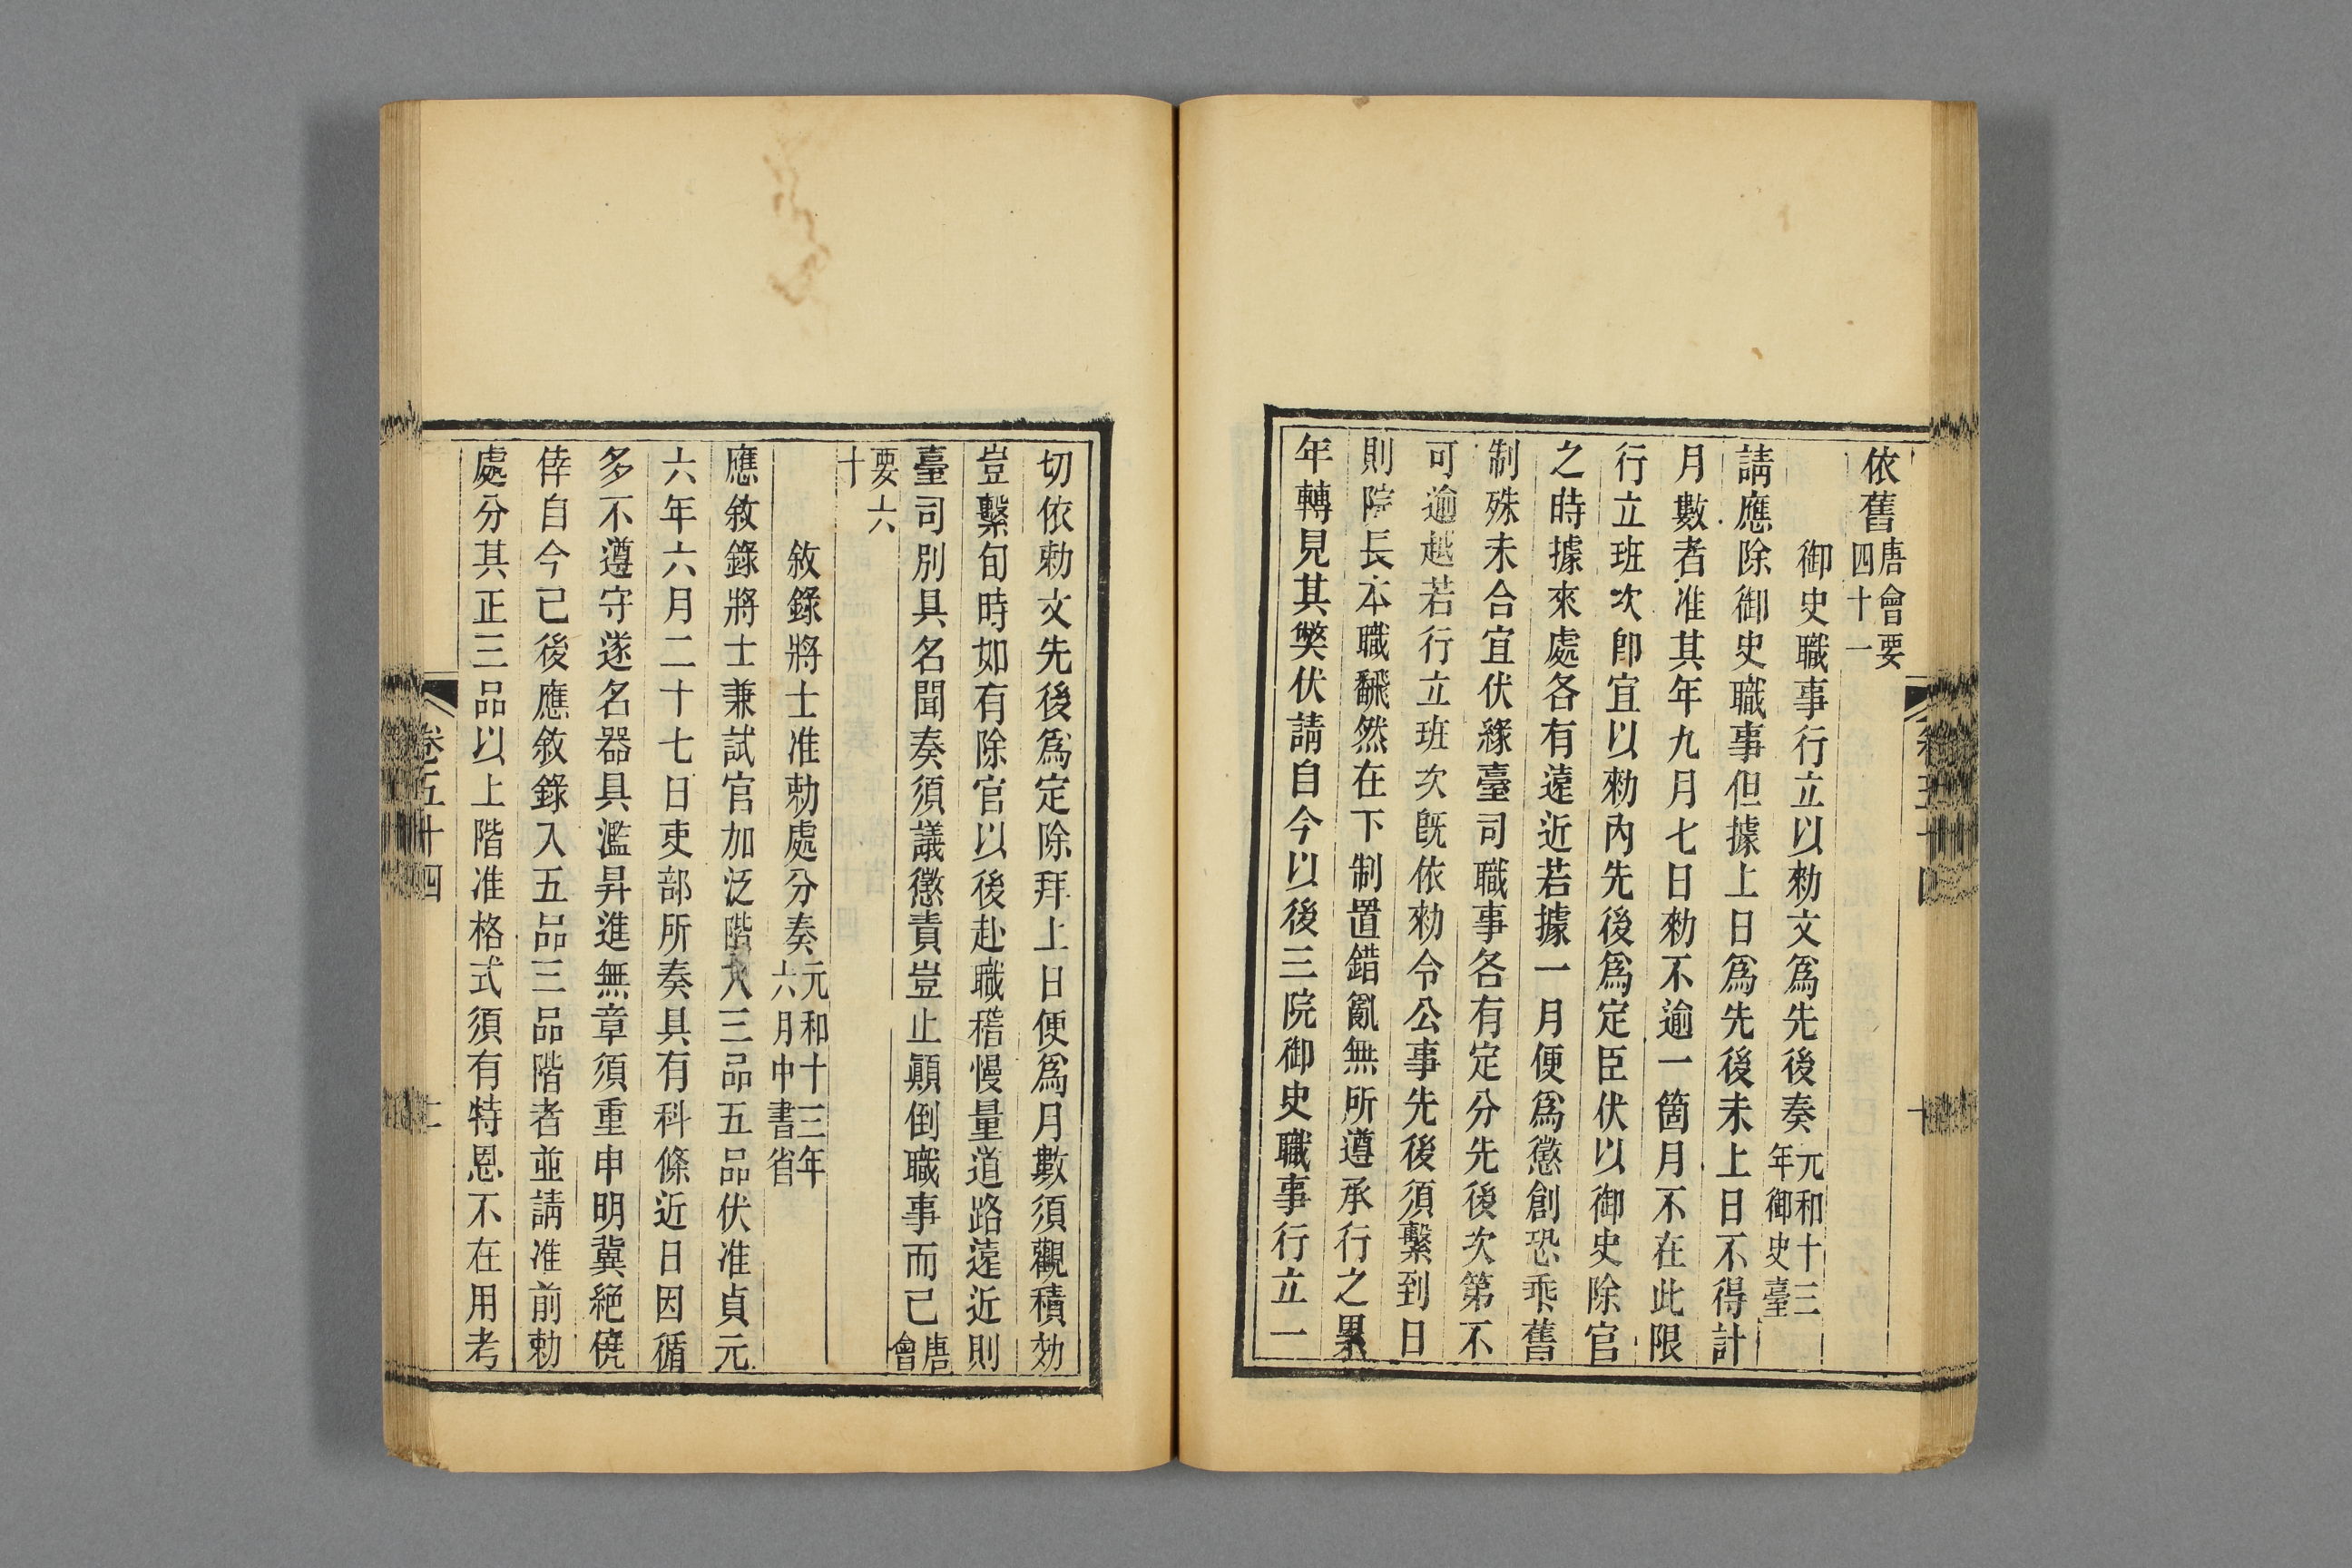 依舊唐會要四十一
御史職事行立以勑文爲先後奏元和十三年御史臺
請應除御史職事但據上日爲先後未上日不得計
月數者准其年九月七日勑不逾一箇月不在此限
行立班次卽宜以勑內先後爲定臣伏以御史除官
之時據來處各有遠近若據一月便爲懲創恐乖舊
制殊未合宜伏緣臺司職事各有定分先後次第不
可逾越若行立班次旣依勑令公事先後須繫到日
則院長本職翻然在下制置錯亂無所遵承行之累
年轉見其獘伏請自今以後三院御史職事行立一
切依勅文先後爲定除拜上日便爲月數須觀積効
豈繫旬時如有除官以後赴職稽慢量道路遠近則
臺司別具名聞奏須議懲責豈止顚倒職事而已唐會
要六十
敘錄將士准勅處分奏元和十三年六月中書省
應敘錄將士兼試官加泛階入三品五品伏准貞元
六年六月二十七日吏部所奏具有科條近日因循
多不遵守遂名器具濫昇進無章須重申明冀絕僥
倖自今已後應敘錄入五品三品階者並請准前勅
處分其正三品以上階准格式須有特恩不在用考
卷五十四